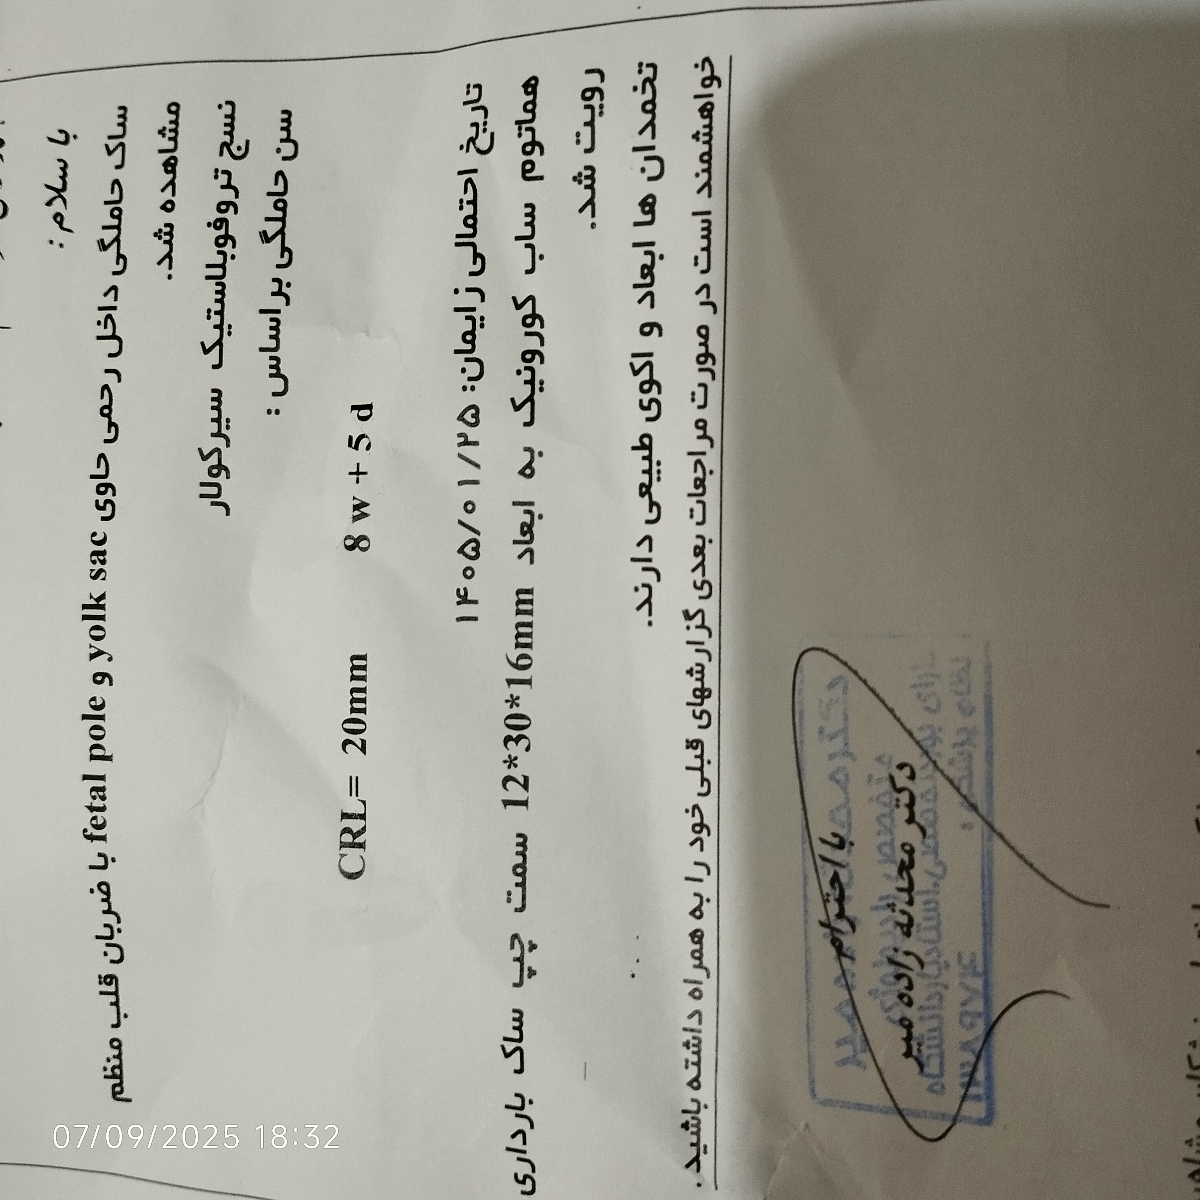 با سلام :
ساک حاملگی داخل رحمی حاوی yolk sac و fetal pole با ضربان قلب منظم
مشاهده شد.
نسج تروفوبلاستیک سیرکولار
سن حاملگی براساس :
CRL= 20mm 8 w + 5 d
تاریخ احتمالی زایمان: ۱۴۰۵/۰۱/۲۵
هماتوم ساب کورونیک به ابعاد 12*30*16mm سمت چپ ساک بارداری
رویت شد.
تخمدان ها ابعاد و اکوی طبیعی دارند.
خواهشمند است در صورت مراجعات بعدی گزارشهای قبلی خود را به همراه داشته باشید.
با احترام
دکتر محدثه زاده میر
07/09/2025 18:32